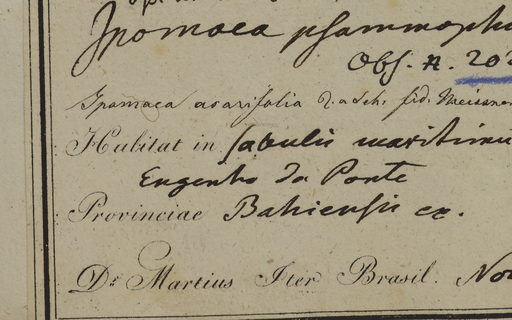 Ipomaea psammoph
Obs. n. 202
Ipomaea acarifolia R. a Sch. fid. Meissner
Habitat in sabulis maritimis
Engenho da Ponte
Provinciae Bahiensis ex.
Dr. Martius Iter Brasil. Nov